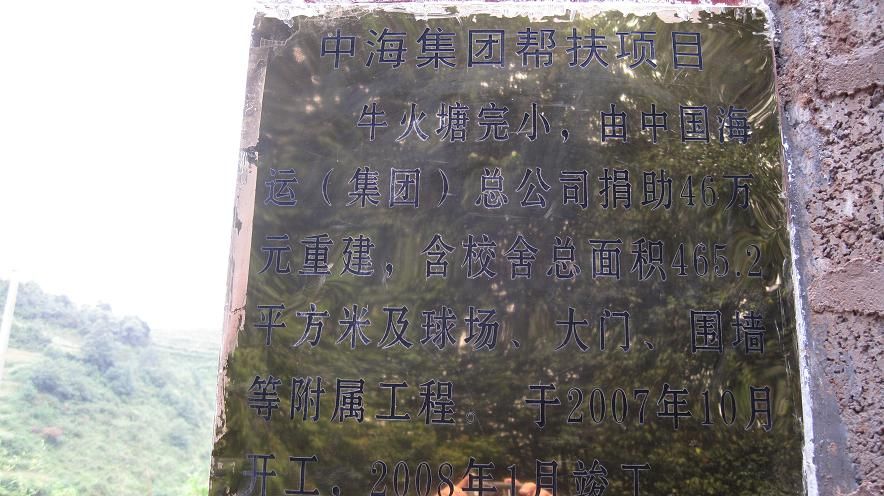 中海集团帮扶项目
牛火塘完小，由中国海
运（集团）总公司捐助46万
元重建，含校舍总面积465.2
平方米及球场、大门、围墙
等附属工程。于2007年10月
开工，2008年1月竣工